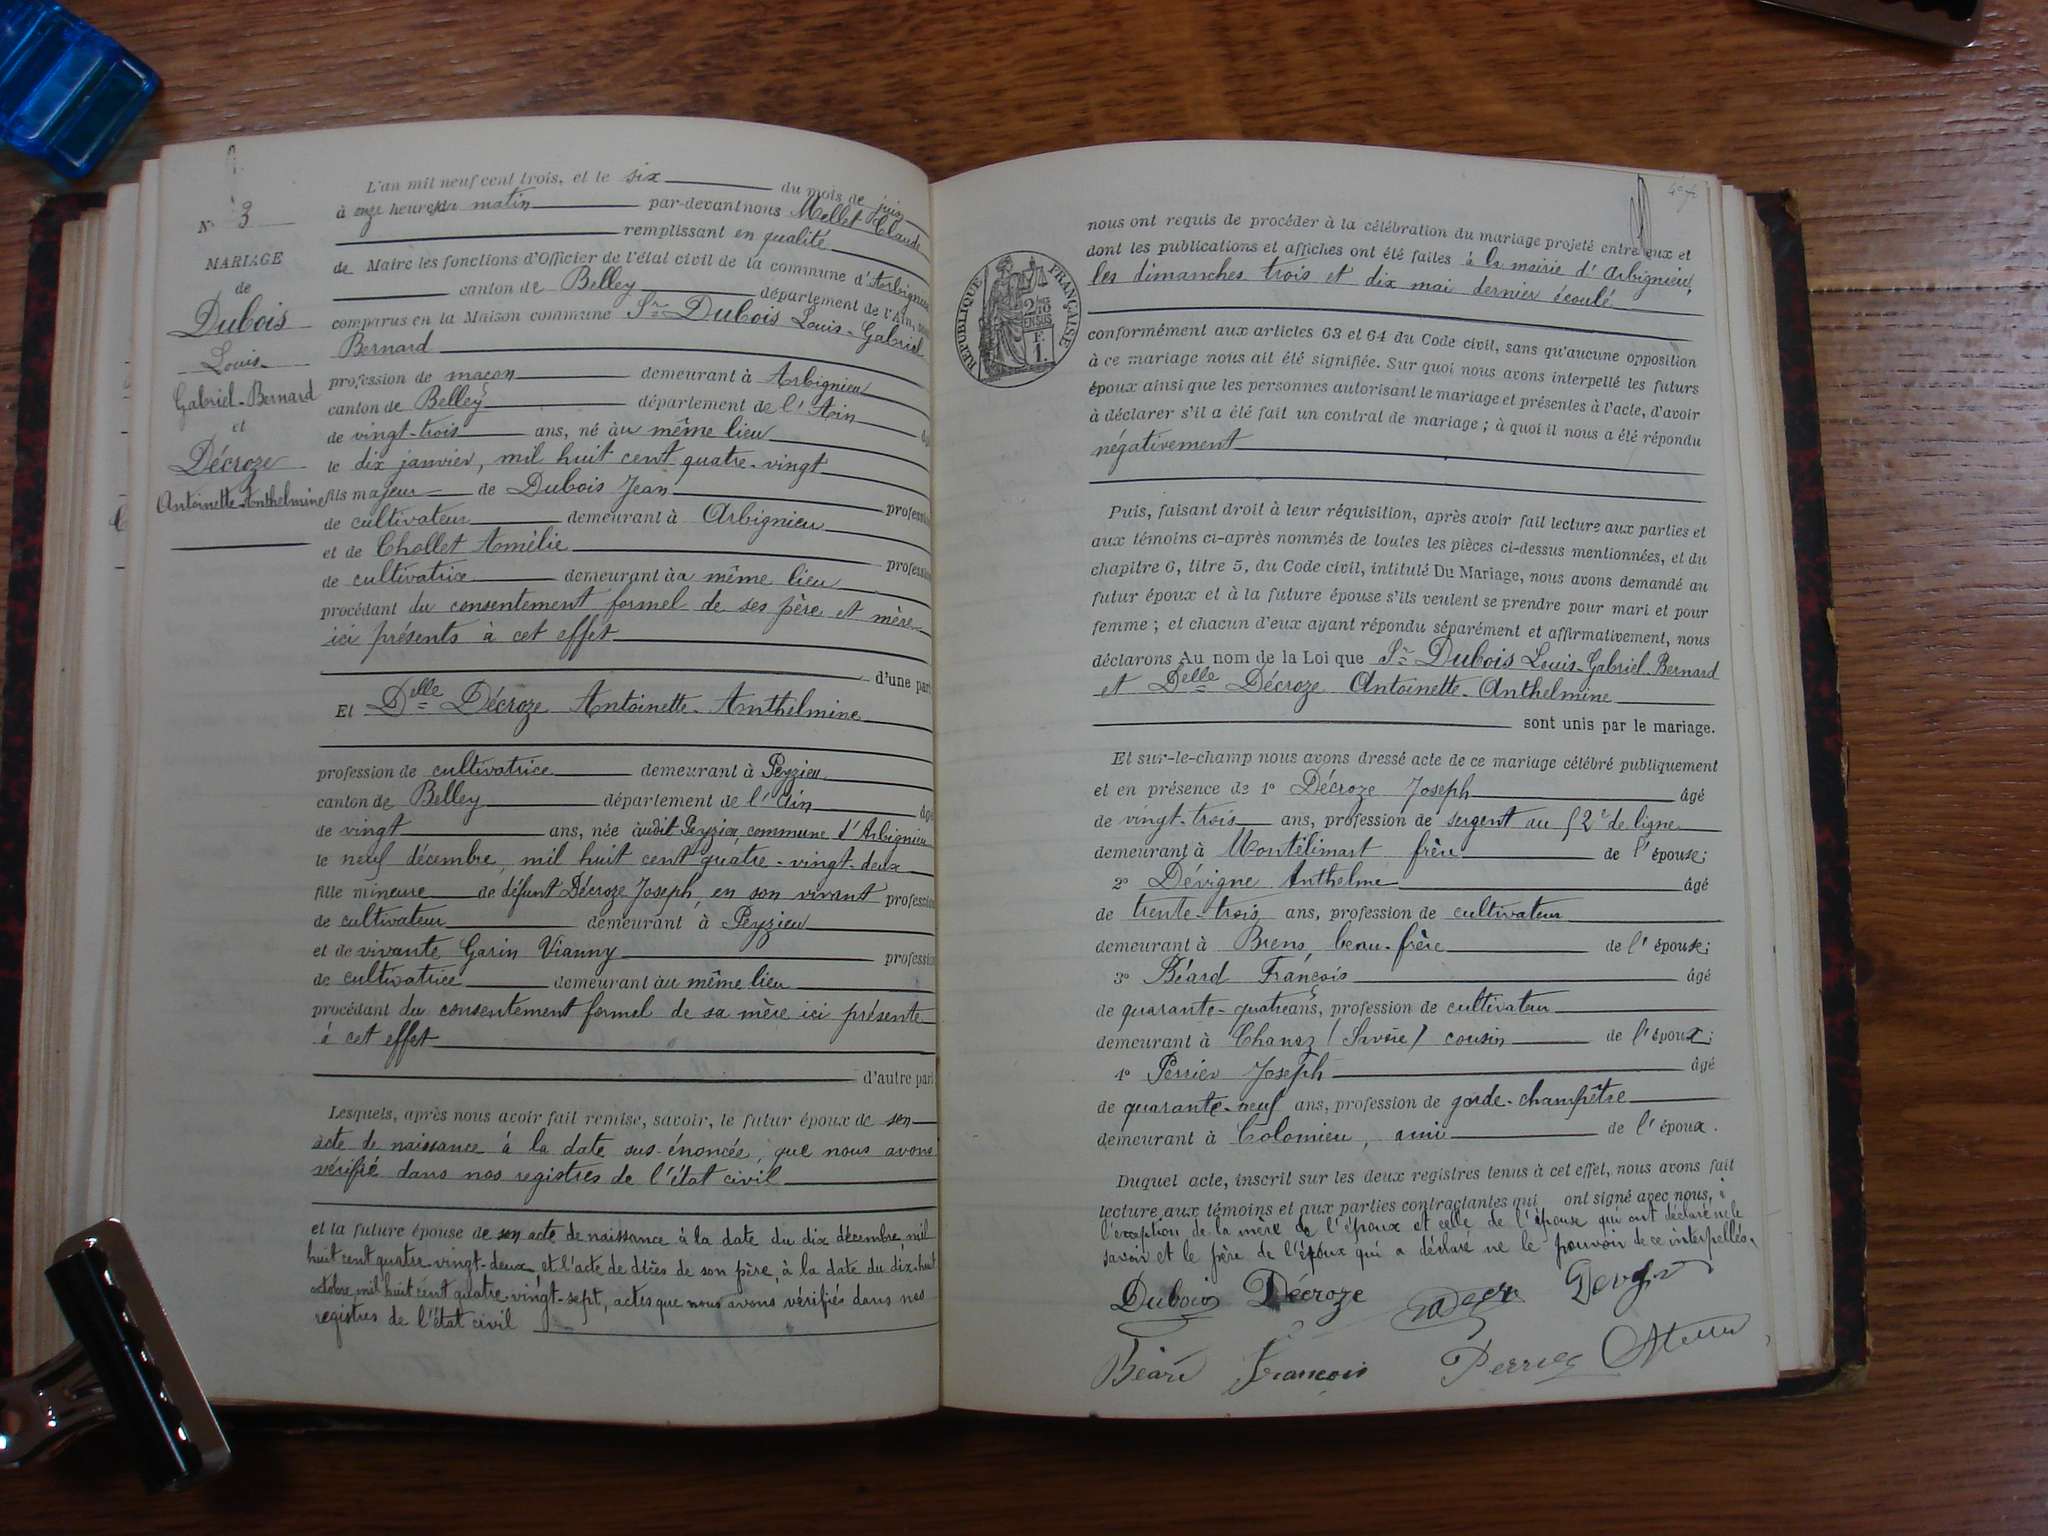 N° 3
MARIAGE
de
Dubois
Louis
Gabriel-Bernard
et
Décroze
Antoinette-Anthelmine
L'an mil neuf cent trois, et le six du mois de juin
à onze heures du matin par-devant nous Mellet Claude
remplissant en qualité
de Maire les fonctions d'Officier de l'état civil de la commune d'Arbignieu
canton de Belley département de l'Ain, sont
comparus en la Maison commune Sr Dubois Louis-Gabriel
Bernard
profession de maçon demeurant à Arbignieu
canton de Belley département de l'Ain âgé
de vingt-trois ans, né au même lieu
le dix janvier, mil huit cent quatre-vingt
fils majeur de Dubois Jean profession
de cultivateur demeurant à Arbignieu
et de Chollet Amélie profession
de cultivatrix demeurant àu même lieu
procédant du consentement formel de ses père et mère
ici présents à cet effet
d'une part
Et Delle Décroze Antoinette-Anthelmine
profession de cultivatrice demeurant à Peyzieu
canton de Belley département de l'Ain âgé
de vingt ans, née àudit Peyzieu commune d'Arbignieu
le neuf décembre, mil huit cent quatre-vingt-deux
fille mineure de défunt Décroze Joseph, en son vivant profession
de cultivateur demeurant à Peyzieu
et de vivante Garin Vianny profession
de cultivatrice demeurant àu même lieu
procédant du consentement formel de sa mère ici présente
à cet effet
d'autre part
Lesquels, après nous avoir fait remise, savoir, le futur époux de son
acte de naissance à la date sus-énoncée, que nous avons
vérifié dans nos registres de l'état civil
et la future épouse de son acte de naissance à la date du dix décembre mil
huit cent quatre-vingt-deux et l'acte de décès de son père, à la date du dix-huit
octobre mil huit cent quatre-vingt-sept, actes que nous avons vérifiés dans nos
registres de l'état civil
nous ont requis de procéder à la célébration du mariage projeté entre eux et
dont les publications et affiches ont été faites à la mairie d'Arbignieu,
les dimanches trois et dix mai dernier écoulé
RÉPUBLIQUE FRANÇAISE
2/10
EN SUS
F.
1.
conformément aux articles 63 et 64 du Code civil, sans qu'aucune opposition
à ce mariage nous ait été signifiée. Sur quoi nous avons interpellé les futurs
époux ainsi que les personnes autorisant le mariage et présentes à l'acte, d'avoir
à déclarer s'il a été fait un contrat de mariage ; à quoi il nous a été répondu
négativement
Puis, faisant droit à leur réquisition, après avoir fait lecture aux parties et
aux témoins ci-après nommés de toutes les pièces ci-dessus mentionnées, et du
chapitre 6, titre 5, du Code civil, intitulé Du Mariage, nous avons demandé au
futur époux et à la future épouse s'ils veulent se prendre pour mari et pour
femme ; et chacun d'eux ayant répondu séparément et affirmativement, nous
déclarons Au nom de la Loi que Sr Dubois Louis-Gabriel-Bernard
et Delle Décroze Antoinette-Anthelmine
sont unis par le mariage.
Et sur-le-champ nous avons dressé acte de ce mariage célébré publiquement
et en présence de 1° Décroze Joseph âgé
de vingt-trois ans, profession de sergent au 52e de ligne
demeurant à Montélimart frère de l'épouse;
2° Dévigne Anthelme âgé
de trente-trois ans, profession de cultivateur
demeurant à Brens, beau-frère de l'épouse;
3° Béard François âgé
de quarante-quatre ans, profession de cultivateur
demeurant à Chanaz (Savoie) cousin de l'époux;
4° Perrier Joseph âgé
de quarante-neuf ans, profession de garde-champêtre
demeurant à Colomieu, ami de l'époux.
Duquel acte, inscrit sur les deux registres tenus à cet effet, nous avons fait
lecture aux témoins et aux parties contractantes qui ont signé avec nous, à
l'exception de la mère de l'époux et celle de l'épouse qui ont déclaré ne le
savoir et le père de l'époux qui a déclaré ne le pouvoir de ce interpellés.
Dubois Décroze
Béard François Perrier